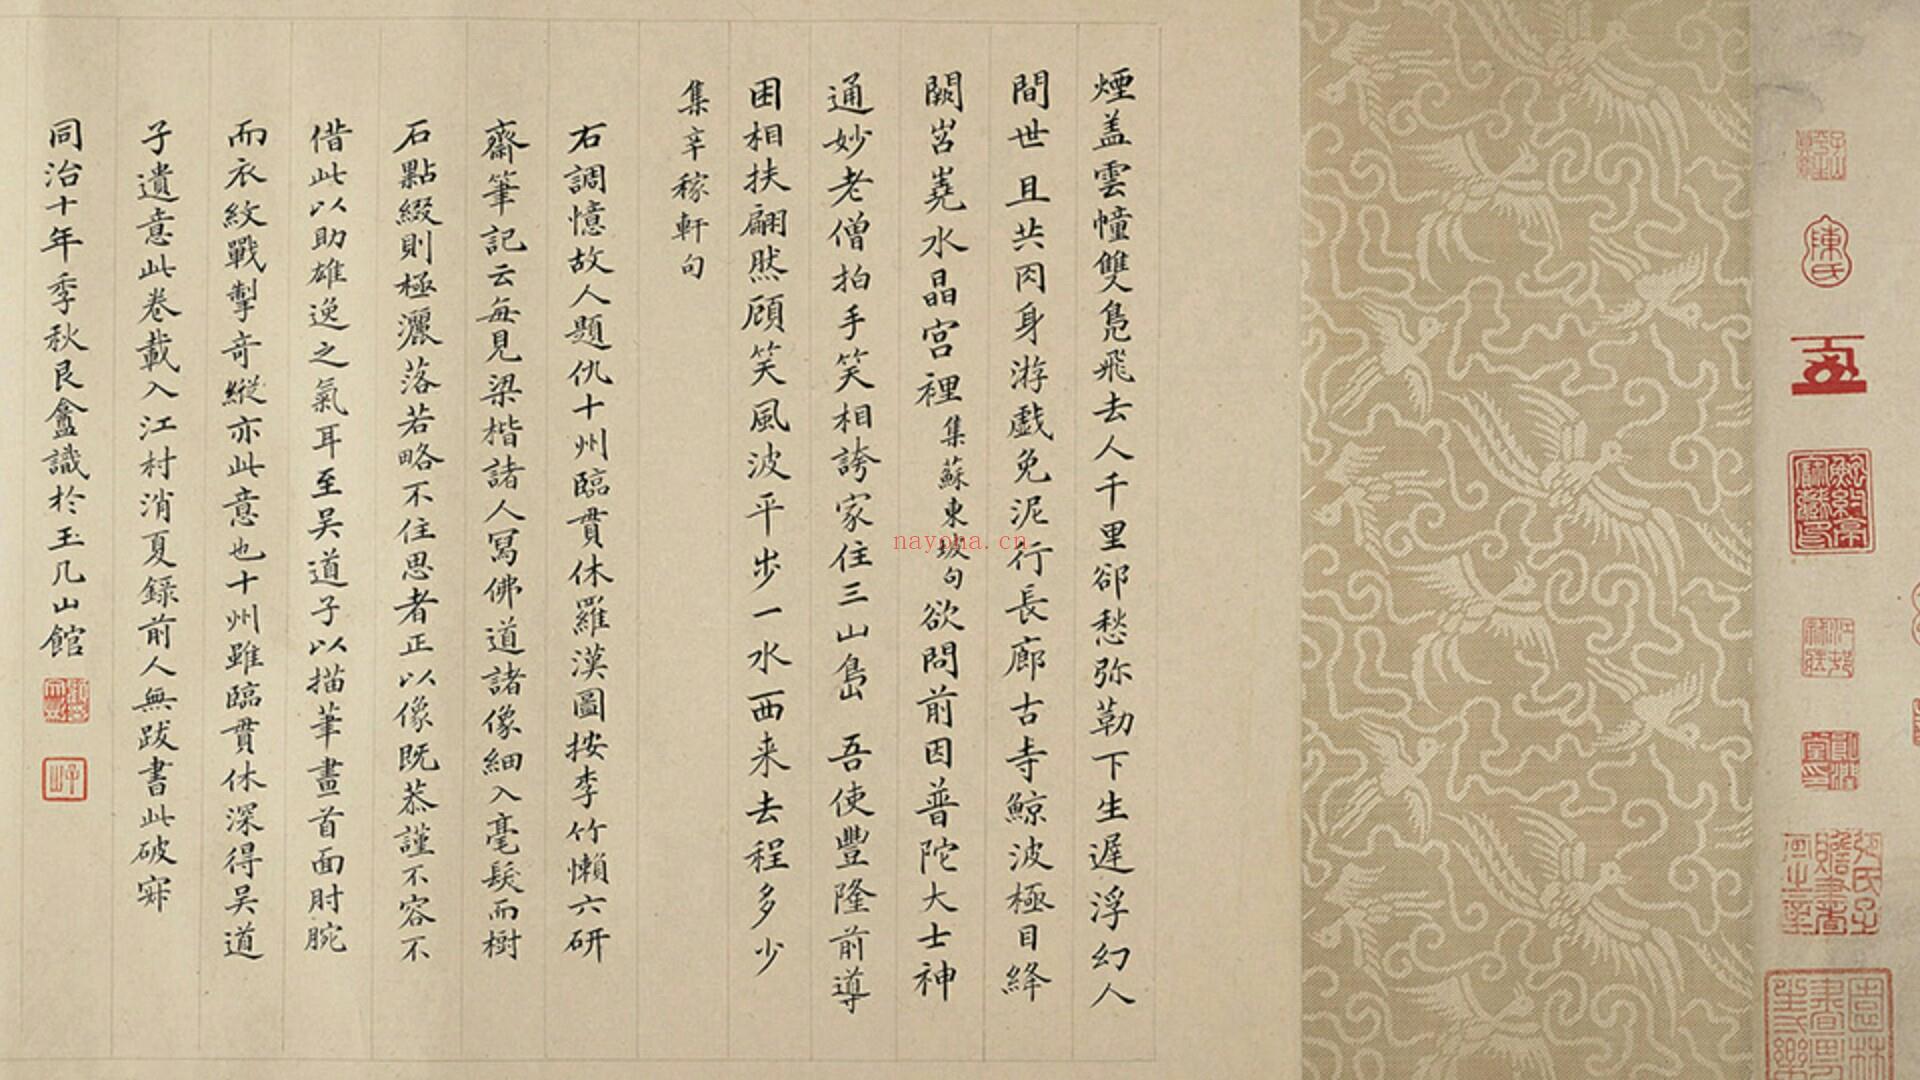 煙盖雲幢雙鳧飛去人千里郤愁弥勒下生遲浮幻人
間世且共肉身游戲免泥行長廊古寺鯨波極目絳
闕岧嶤水晶宫裡集蘇東坡句欲問前因普陀大士神
通妙老僧拍手笑相誇家住三山島 吾使豐隆前導
困相扶翩然顾笑風波平步一水西来去程多少
集辛稼軒句
右調憶故人題仇十州臨貫休羅漢圖按李竹懶六研
齋筆記云每見梁楷諸人寫佛道諸像細入毫髮而樹
石點綴則極灑落若略不住思者正以像既恭謹不容不
借此以助雄逸之氣耳至吴道子以描筆畫首面肘腕
而衣紋戰掣奇縱亦此意也十州雖臨貫休深得吴道
子遺意此卷載入江村消夏録前人無跋書此破寂
同治十年季秋艮盦識於玉几山館
子山
陳氏
nayona.cn